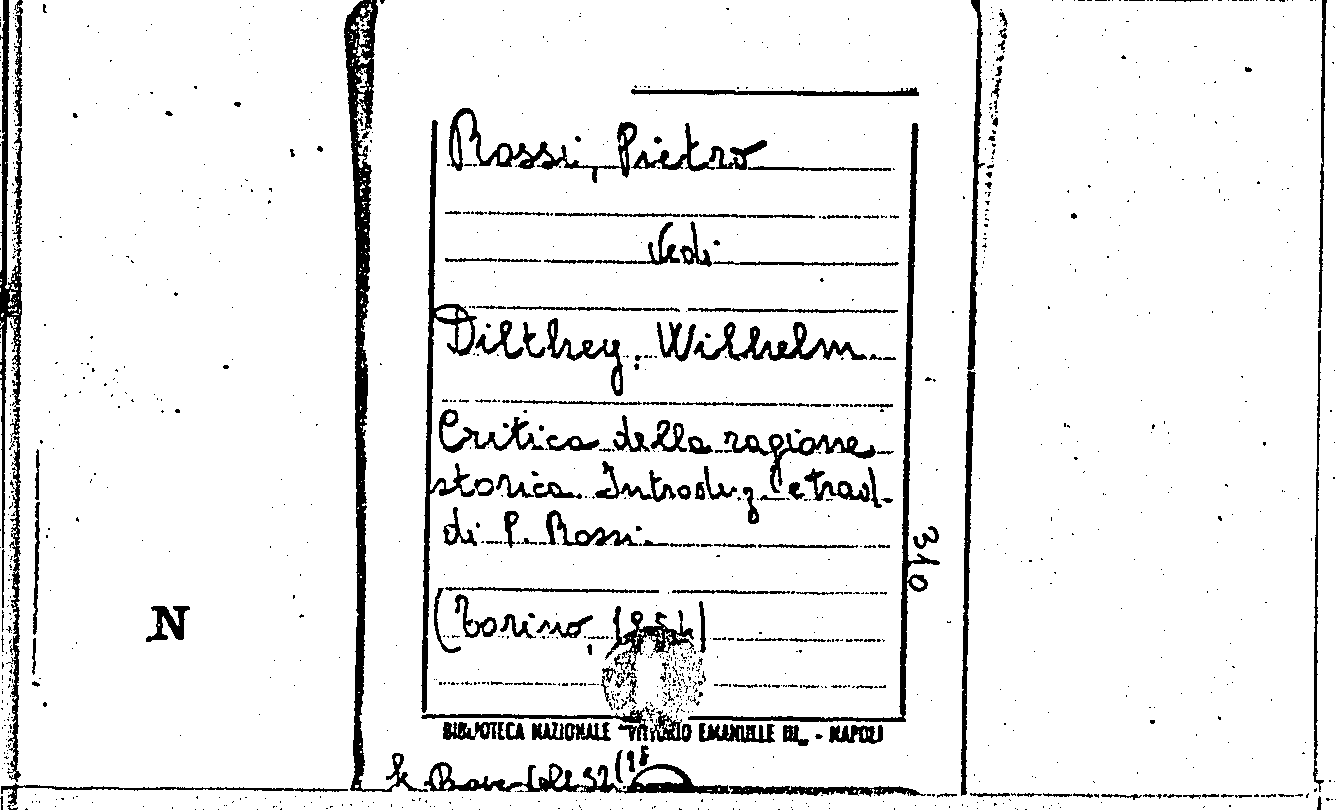 Rossi, Pietro
Vedi
Dilthey, Wilhelm
Critica della ragione
storica. Introduz. e trad.
di P. Rossi.
310
N
(Torino, 1954)
BIBLIOTECA NAZIONALE "VITTORIO EMANUELE III" - NAPOLI